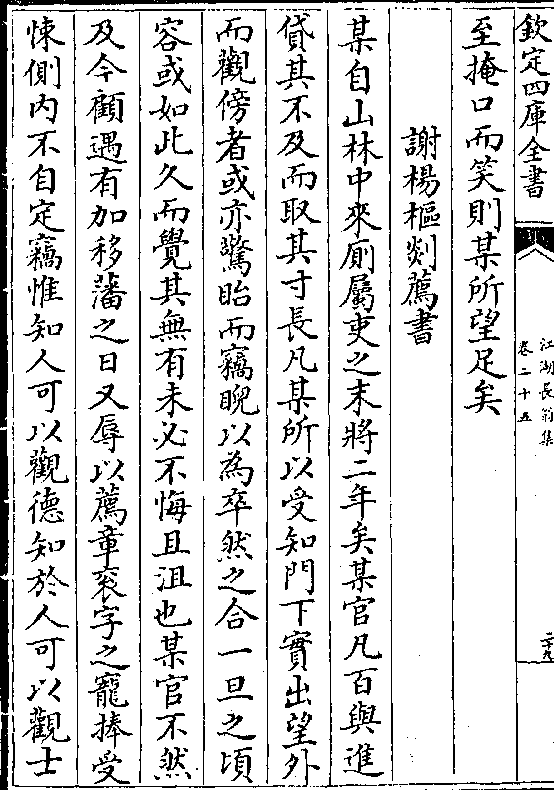 欽定四庫全書
江湖長翁集
卷二十五
二十九
至掩口而笑則某所望足矣
謝楊樞剡薦書
某自山林中來厠屬吏之末將二年矣某官凡百與進
貸其不及而取其寸長凡某所以受知門下實出望外
而觀傍者或亦驚眙而竊睨以為卒然之合一旦之頃
容或如此久而覺其無有未必不悔且沮也某官不然
及今顧遇有加移藩之日又辱以薦章衮字之寵捧受
悚側内不自定竊惟知人可以觀德知於人可以觀士